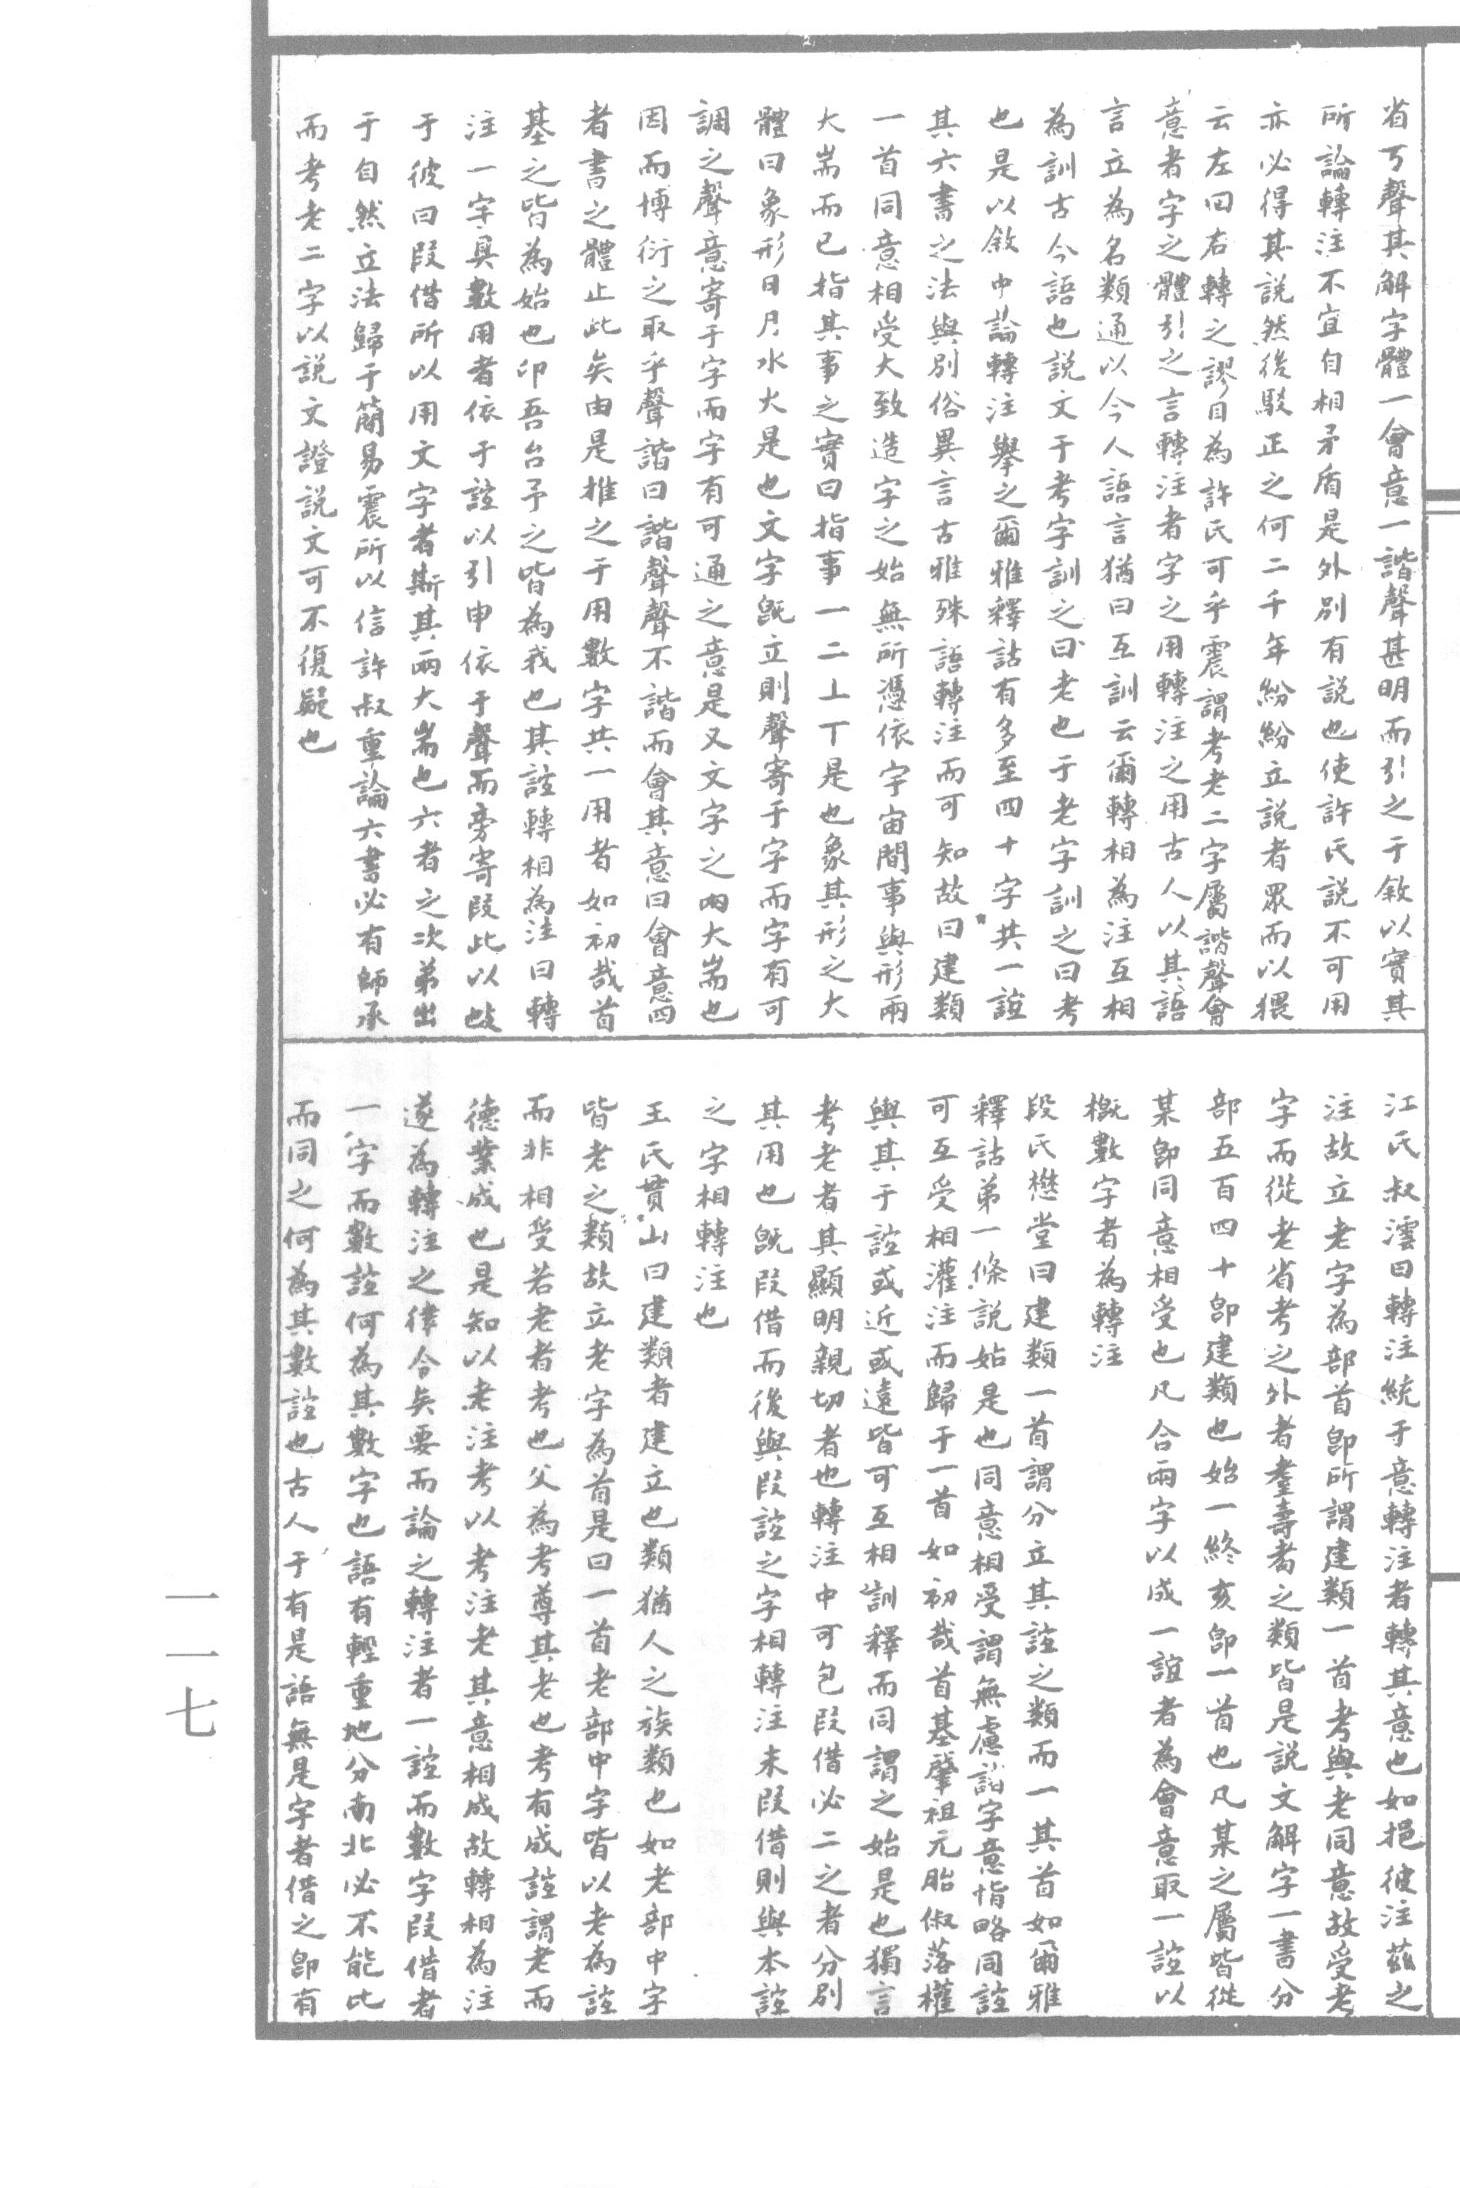 省丂聲其解字體一會意一諧聲甚明而引之于敘以實其
所論轉注不宜自相矛盾是外別有説也使許氏説不可用
亦必得其説然後駁正之何二千年紛紛立説者眾而以猥
云左回右轉之謬目為許氏可乎震謂考老二字屬諧聲會
意者字之體引之言轉注者字之用轉注之用古人以其語
言立為名類通以今人語言猶曰互訓云爾轉相為注互相
為訓古今語也説文于考字訓之曰老也于老字訓之曰考
也是以敘中論轉注舉之爾雅釋詁有多至四十字共一誼
其六書之法與別俗異言古雅殊語轉注而可知故曰建類
一首同意相受大致造字之始無所憑依宇宙閒事與形兩
大耑而已指其事之實曰指事一二上丅是也象其形之大
體曰象形日月水火是也文字旣立則聲寄于字而字有可
調之聲意寄于字而字有可通之意是又文字之兩大耑也
因而博衍之取乎聲諧曰諧聲聲不諧而會其意曰會意四
者書之體止此矣由是推之于用數字共一用者如初哉首
基之皆為始也卬吾台予之皆為我也其誼轉相為注曰轉
注一字具數用者依于誼以引申依于聲而旁寄叚此以㰳
于彼曰叚借所以用文字者斯其兩大耑也六者之次弟出
于自然立法歸于簡易震所以信許叔重論六書必有師承
而考老二字以説文證説文可不復疑也
江氏叔澐曰轉注統于意轉注者轉其意也如挹彼注茲之
注故立老字為部首卽所謂建類一首考與老同意故受老
字而從老省考之外者耋壽耇之類皆是説文解字一書分
部五百四十卽建類也始一終亥卽一首也凡某之屬皆從
某卽同意相受也凡合兩字以成一誼者為會意取一誼以
概數字者為轉注
段氏懋堂曰建類一首謂分立其誼之類而一其首如爾雅
釋詁弟一條説始是也同意相受謂無慮諸字意恉略同誼
可互受相灌注而歸于一首如初哉首基肇祖元胎俶落權
輿其于誼或近或遠皆可互相訓釋而同謂之始是也獨言
考老者其顯明親切者也轉注中可包叚借必二之者分別
其用也旣叚借而後與叚誼之字相轉注未叚借則與本誼
之字相轉注也
王氏貫山曰建類者建立也類猶人之族類也如老部中字
皆老之類故立老字為首是曰一首老部中字皆以老為誼
而非相受若老者考也父為考尊其老也考有成誼謂老而
德業成也是知以老注考以考注老其意相成故轉相為注
遂為轉注之律令矣要而論之轉注者一誼而數字叚借者
一字而數誼何為其數字也語有輕重地分南北必不能比
而同之何為其數誼也古人于有是語無是字者借之卽有
一一七